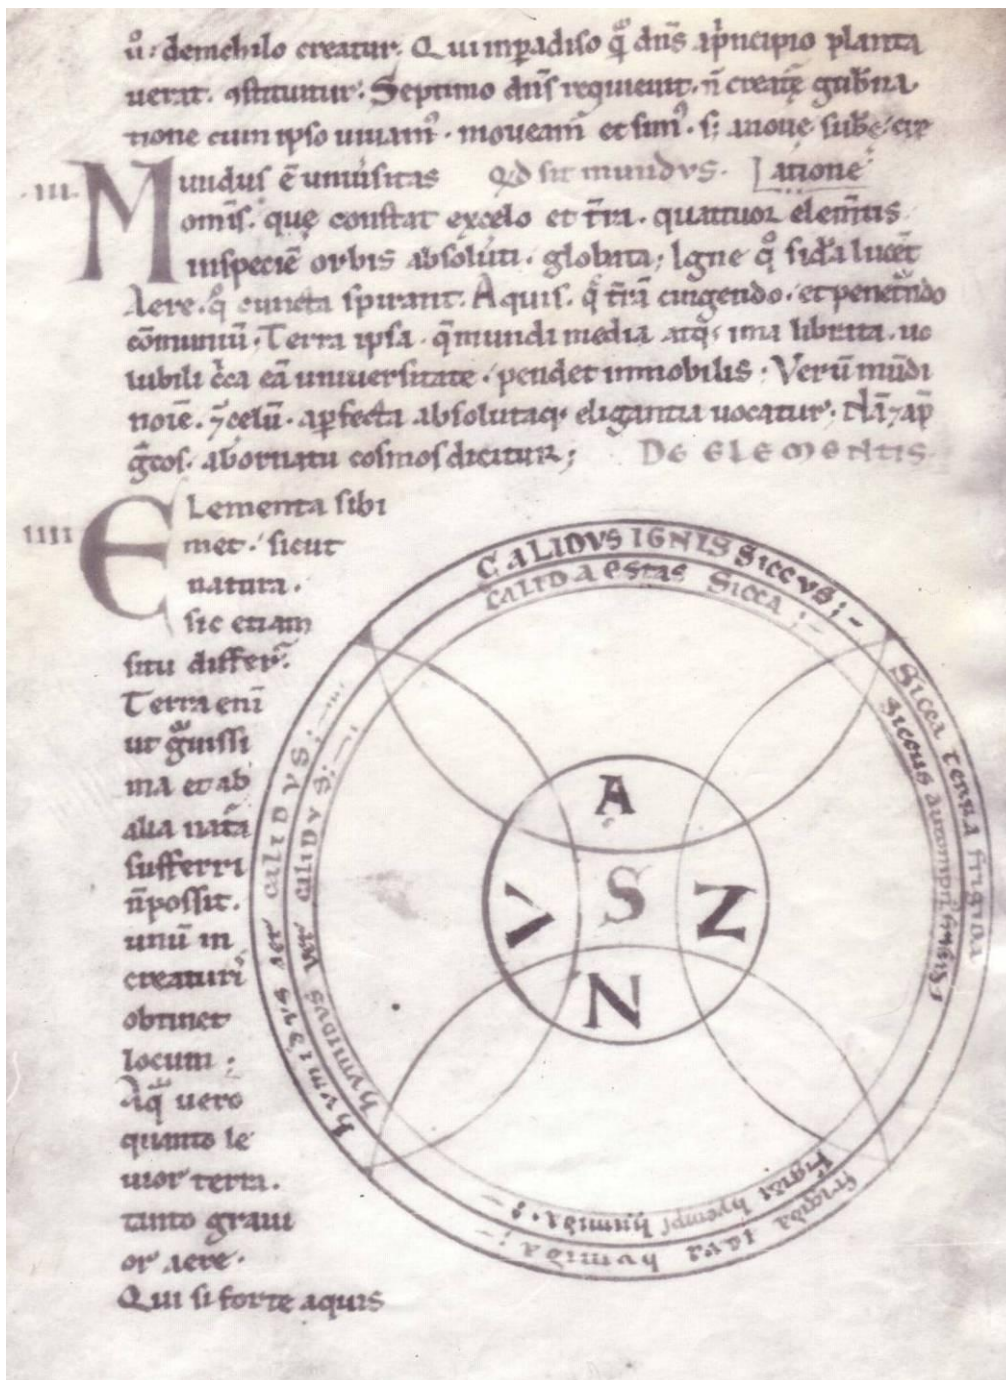 uº: demchilo creatur. Qui inparadiso qͣ dn̄s aprincipio planta
uerat. ꝯstituuntur. Septimo dn̄s requieuit. n̄ creatę gub̄na
tione cum ipso uiuamꝰ. moueamꝰ et simꝰ.
.III. Mundus ē uniuersitas Qd sit mundvs. Latione
omīs. quę constat excelo et t̄ra. quattuor elem̄tis
inspeciē orbis absoluti. globata; Igne qº sid̓a lucet̄
Aere. qº cuncta spirant. Aquis. q̄ t̄rā cingendo. et penet̓ndo
cōmuniū. Terra ipsa. q̄ mundi media atq; ima librata. uo
lubili c̓ca eā uniuersitate. pendet inmobilis. Verū mūdi
noīe. ⁊ celū. aꝑfecta absolutaq; eligantia uocatur. Nā ⁊ ap̄
g̓cos. abornatu cosmos dicitur; De elementis
IIII Elementa sibi
met. sicut
natura.
sic etiam
situ differ̄.
Terra enī
ut gͣuissi
ma et ab
alia natā
sufferri
n̄ possit.
unū in
creaturis
obtinet
locum;
Aqͣ uero
quanto le
uior terra.
tanto graui
or aere.
Qui si forte aquis
CALIDVS IGNIS SICCVS;
CALIDA estas Sicca;
Sicca terra frigida
Siccus autompnꝰ frigidꝰ;
frigida aqua humida;
Frigida hyemps humida.;
humidus aer calidvs;
humidus ver calidvs;
A
V S Z
N